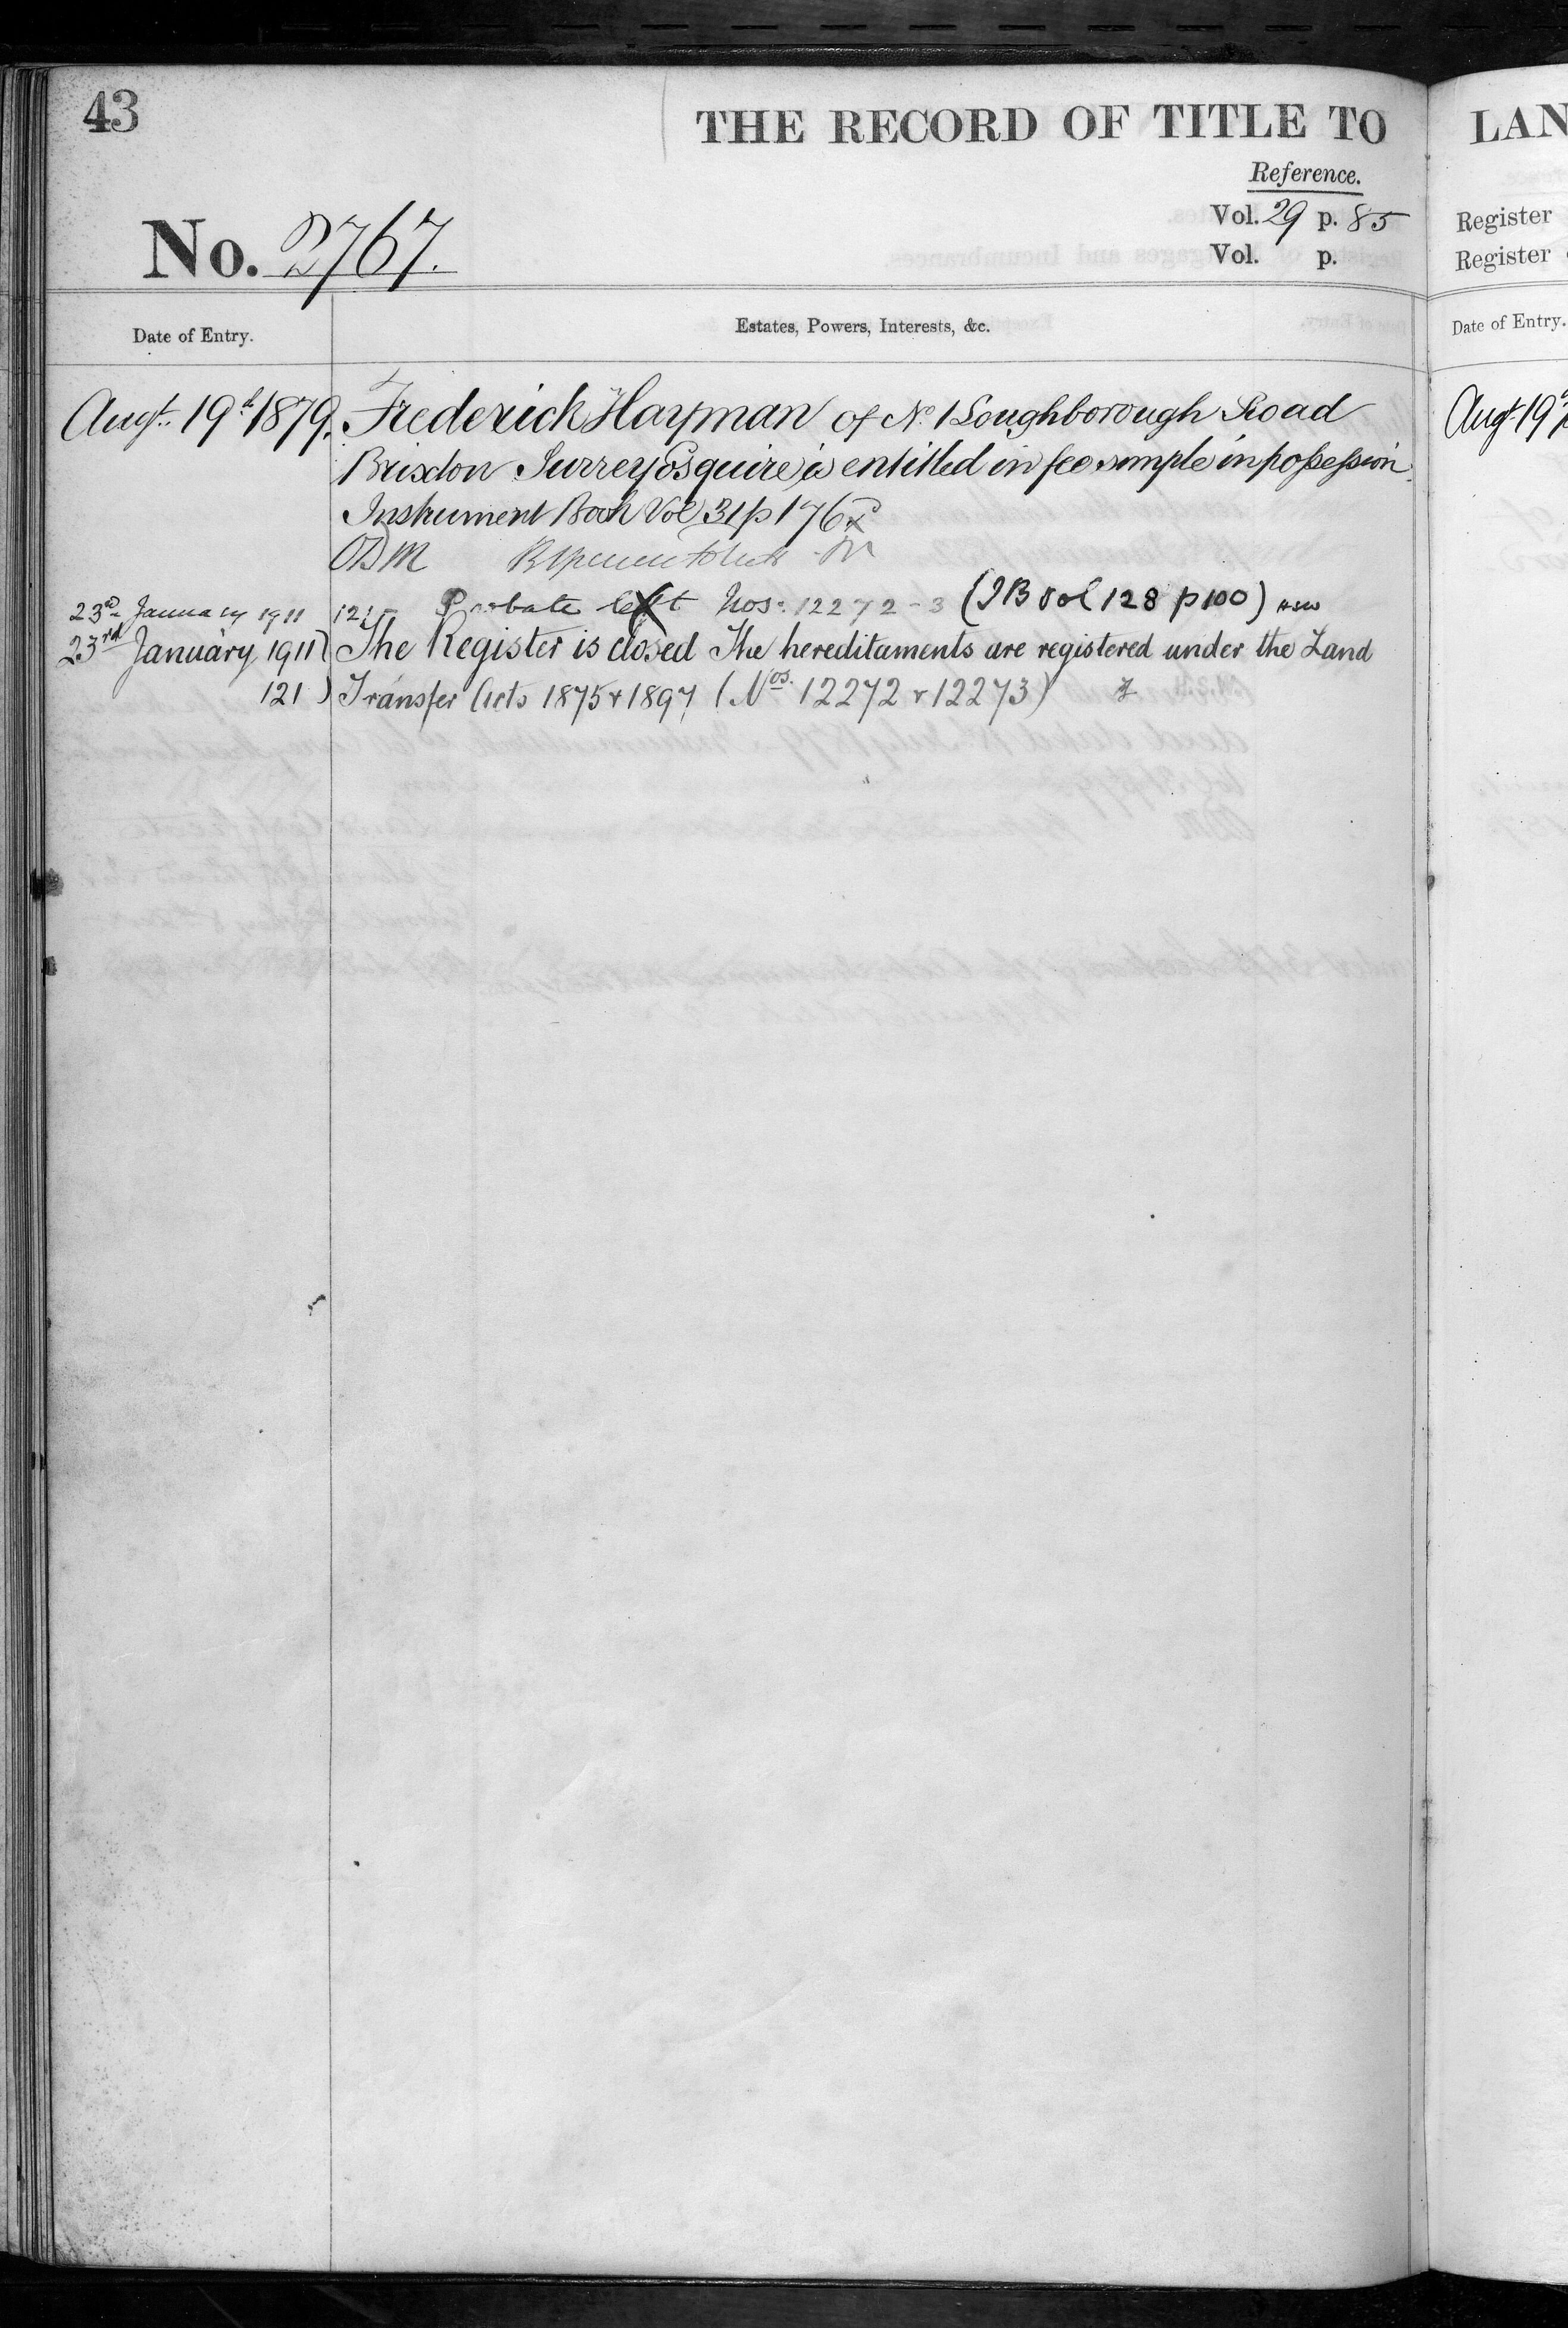 43
THE RECORD OF TITLE TO
Reference.
Vol. 29 p. 85
Vol. p.
No. 2767.
Date of Entry.
Estates, Powers, Interests, &c.
Augt. 19th 1879. Frederick Hayman of No. 1 Loughborough Road
Brixton Surrey Esquire is entitled in fee simple in possession.
Instrument Book Vol 31 p 176
23rd January 1911 121 Probate left Nos. 12272-3 (IB Vol 128 p 100)
23rd January 1911) The Register is closed The hereditaments are registered under the Land
121) Transfer Acts 1875 & 1897 (Nos. 12272 & 12273)
LAN
Register
Register
Date of Entry.
Augt 19th